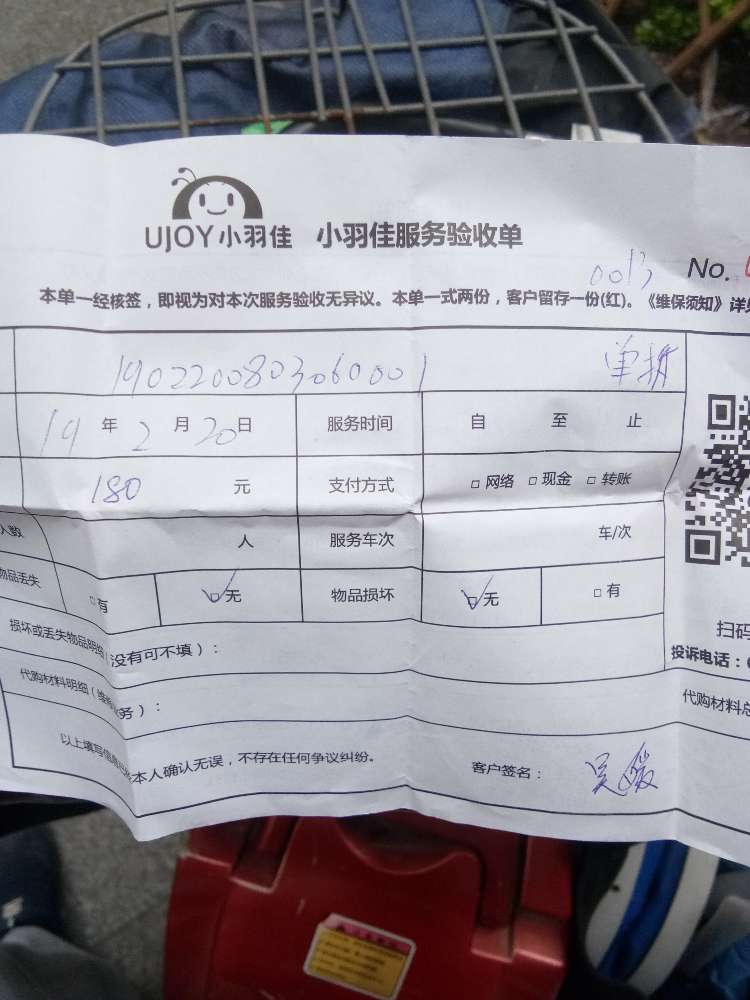 UJOY小羽佳 小羽佳服务验收单
0013 No.
本单一经核签，即视为对本次服务验收无异议。本单一式两份，客户留存一份(红)。《维保须知》详见
1902200803060001 单拆
19 年 2 月 20 日 服务时间 自 至 止
180 元 支付方式 □ 网络 □ 现金 □ 转账
人数 人 服务车次 车/次
物品丢失 □ 有 ☑ 无 物品损坏 ☑ 无 □ 有
扫码
损坏或丢失物品明细（没有可不填）：
投诉电话：
代购材料明细（ 务）：
代购材料总
以上填写信息 本人确认无误，不存在任何争议纠纷。
客户签名： 吴媛